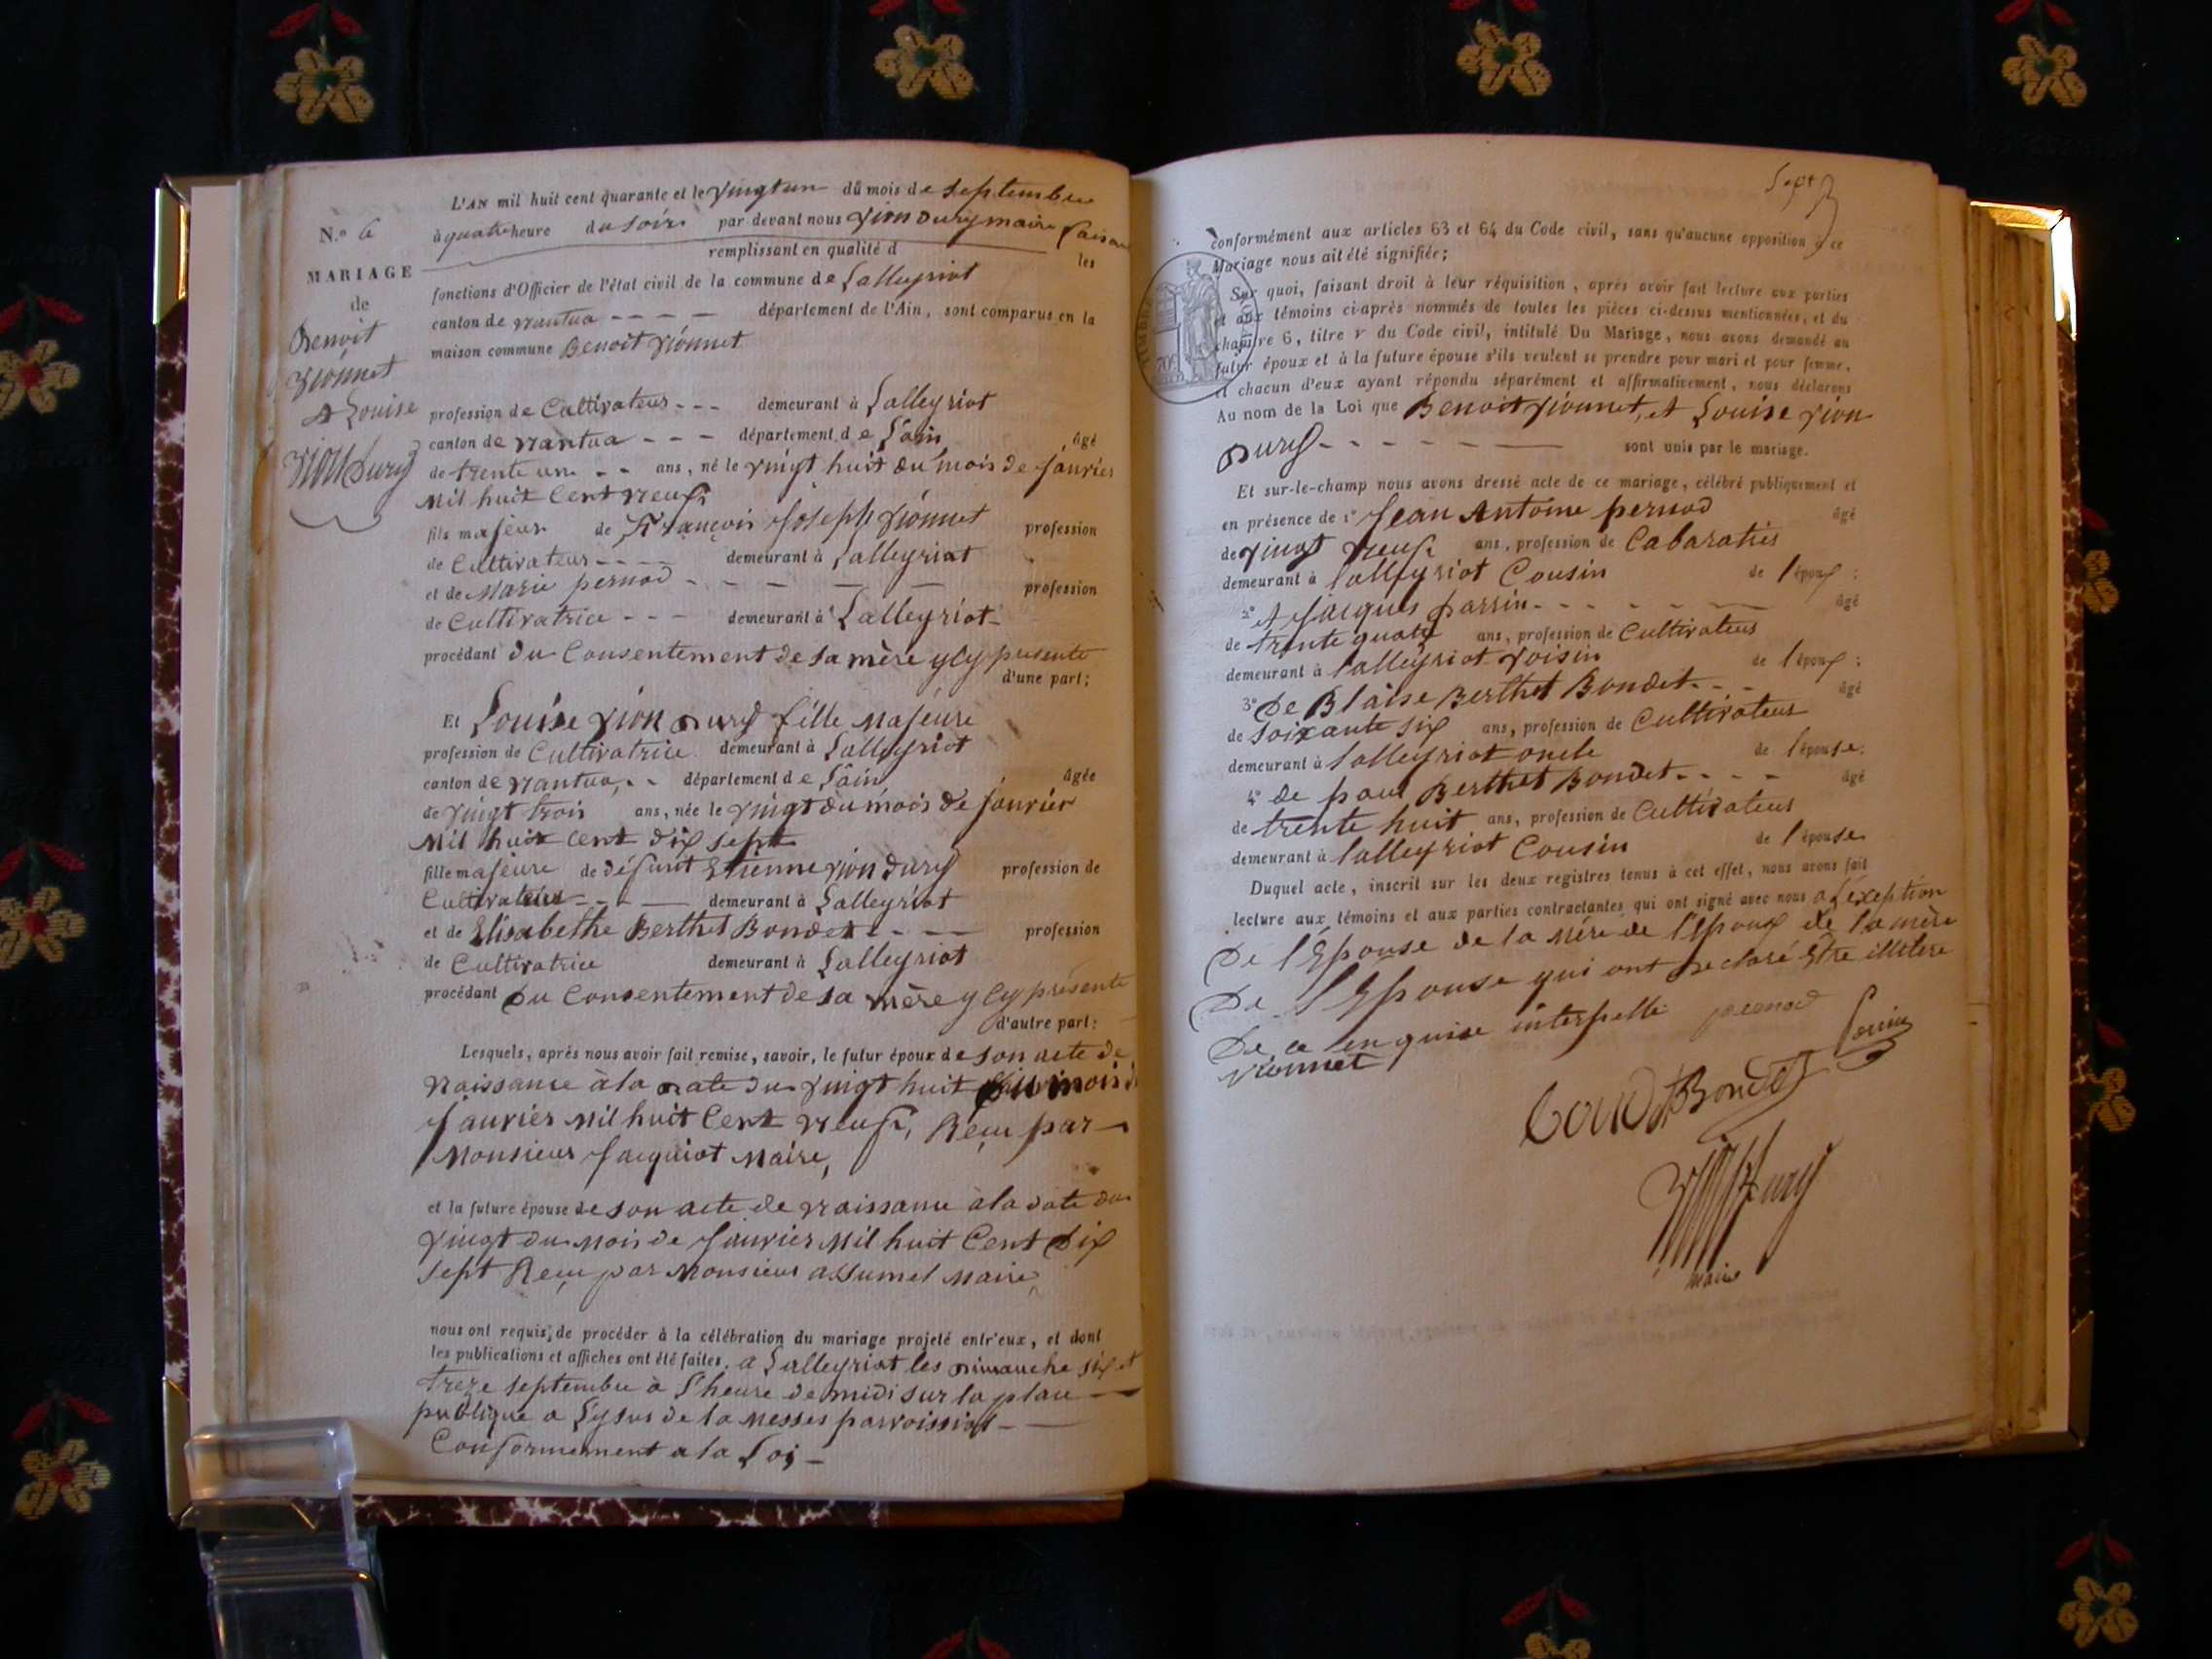 L'AN mil huit cent quarante et le vingt un du mois de septembre
N.º 6 à quatre heure du soir par devant nous vion dury maire faisant
remplissant en qualité d les
MARIAGE
fonctions d'Officier de l'état civil de la commune de Lalleyriat
de
canton de nantua - - - - département de l'Ain, sont comparus en la
Benoit
maison commune Benoit vionnet
vionnet
et Louise
profession de Cultivateur - - - demeurant à Lalleyriat
canton de nantua - - - département de L'ain âgé
vion Dury
de trente un - - ans, né le vingt huit du mois de janvier
Mil huit Cent neuf
fils majeur de François joseph vionnet profession
de Cultivateur - - - - demeurant à Lalleyriat
et de Marie pernod - - - - profession
de Cultivatrice - - - demeurant à Lalleyriat
procédant du Consentement de sa mère y cy presente
d'une part;
Et Louise vion Dury fille Majeure
profession de Cultivatrice demeurant à Lalleyriat
canton de nantua - - département de L'ain âgée
de vingt trois ans, née le vingt du mois de janvier
Mil huit cent dix sept
fille majeure de défunt Etienne vion Dury profession de
Cultivateur - - - demeurant à Lalleyriat
et de Elisabethe Berthet Bondet - - - profession
de Cultivatrice demeurant à Lalleyriat
procédant Du Consentement de sa mère y cy présente
d'autre part:
Lesquels, après nous avoir fait remise, savoir, le futur époux de son acte de
Naissance à la Date du vingt huit du mois de
janvier Mil huit Cent neuf, Reçu par
Monsieur jacquiot Maire,
et la future épouse de son acte de naissance à la date du
vingt du Mois de janvier Mil huit Cent Dix
sept Reçu par Monsieur assumel Maire,
nous ont requis de procéder à la célébration du mariage projeté entr'eux, et dont
les publications et affiches ont été faites. a Lalleyriat les Dimanche six et
treze septembre à L'heure de midi sur la place
publique a L'ysus de la Messes parroissial
Conformement a la Loi
Sept
conformément aux articles 63 et 64 du Code civil, sans qu'aucune opposition à ce
Mariage nous ait été signifiée;
Sur quoi, faisant droit à leur réquisition, après avoir fait lecture aux parties
et aux témoins ci-après nommés de toutes les pièces ci-dessus mentionnées, et du
chapitre 6, titre V du Code civil, intitulé Du Mariage, nous avons demandé au
futur époux et à la future épouse s'ils veulent se prendre pour mari et pour femme,
et chacun d'eux ayant répondu séparément et affirmativement, nous déclarons
Au nom de la Loi que Benoit vionnet, et Louise vion
Dury - - - - - - sont unis par le mariage.
Et sur-le-champ nous avons dressé acte de ce mariage, célébré publiquement et
en présence de 1º Jean Antoine pernod âgé
de vingt neuf ans, profession de Cabaratiés
demeurant à Lalleyriat Cousin de l'époux :
2º et jacques parrin - - - - - - âgé
de trente quatre ans, profession de Cultivateur
demeurant à Lalleyriat voisin de l'époux :
3º De Blaise Berthet Bondet - - - âgé
de soixante six ans, profession de Cultivateur
demeurant à Lalleyriat oncle de l'épouse:
4º de paul Berthet Bondet - - - - âgé
de trente huit ans, profession de Cultivateur
demeurant à Lalleyriat Cousin de l'épouse
Duquel acte, inscrit sur les deux registres tenus à cet effet, nous avons fait
lecture aux témoins et aux parties contractantes qui ont signé avec nous a l'exeption
De l'Epouse de la Mère de l'Epoux de la mère
De L'Epouse qui ont Declaré Etre illitere
De ce enquise interpellé pernod
vionnet
Bondet
Maire